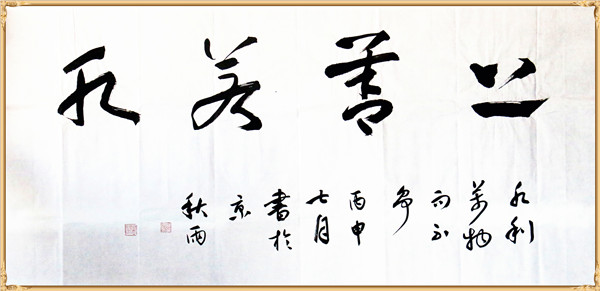 上善若水
水利
萬物
而不
爭
丙申
七月
書於
京
秋雨